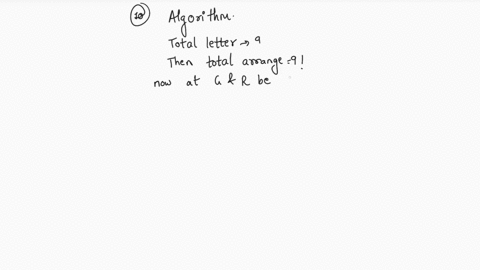 10 Algorithm.
Total letter → 9
Then total arrange = 9!
now at G & R be